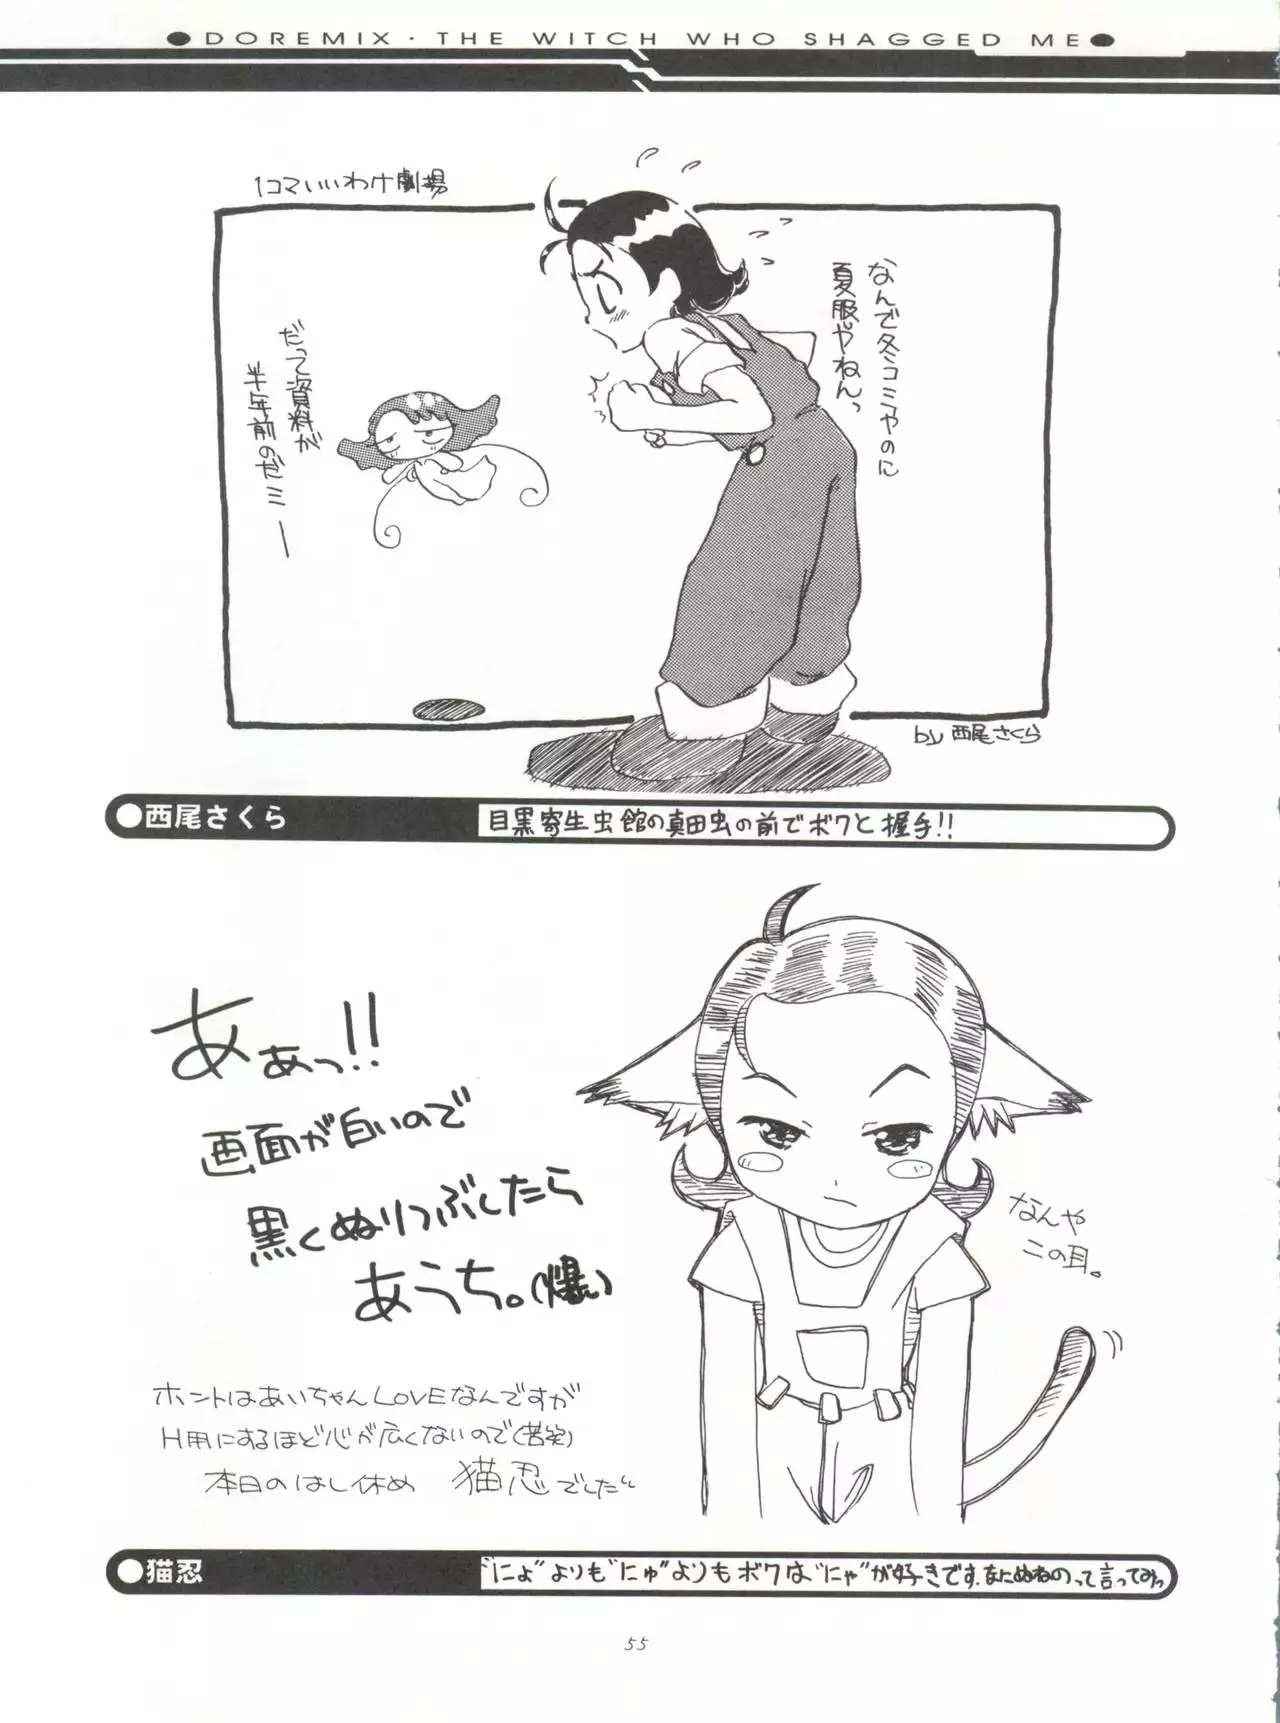 ●DOREMIX・THE WITCH WHO SHAGGED ME●
1コマいいわけ劇場
なんで冬コミやのに
夏服やねんっ
だって資料が
半年前のだミー
by 西尾さくら
●西尾さくら
目黒寄生虫館の真田虫の前でボクと握手!!
あぁっ!!
画面が白いので
黒くぬりつぶしたら
あうち。(爆)
なんや
この耳。
ホントはあいちゃんLOVEなんですが
H用にするほど心が広くないので(苦笑)
本日のはし休め 猫忍でした
●猫忍
"にょ"よりも"にゅ"よりもボクは"にゃ"が好きです.なにぬねのって言ってみっ
55